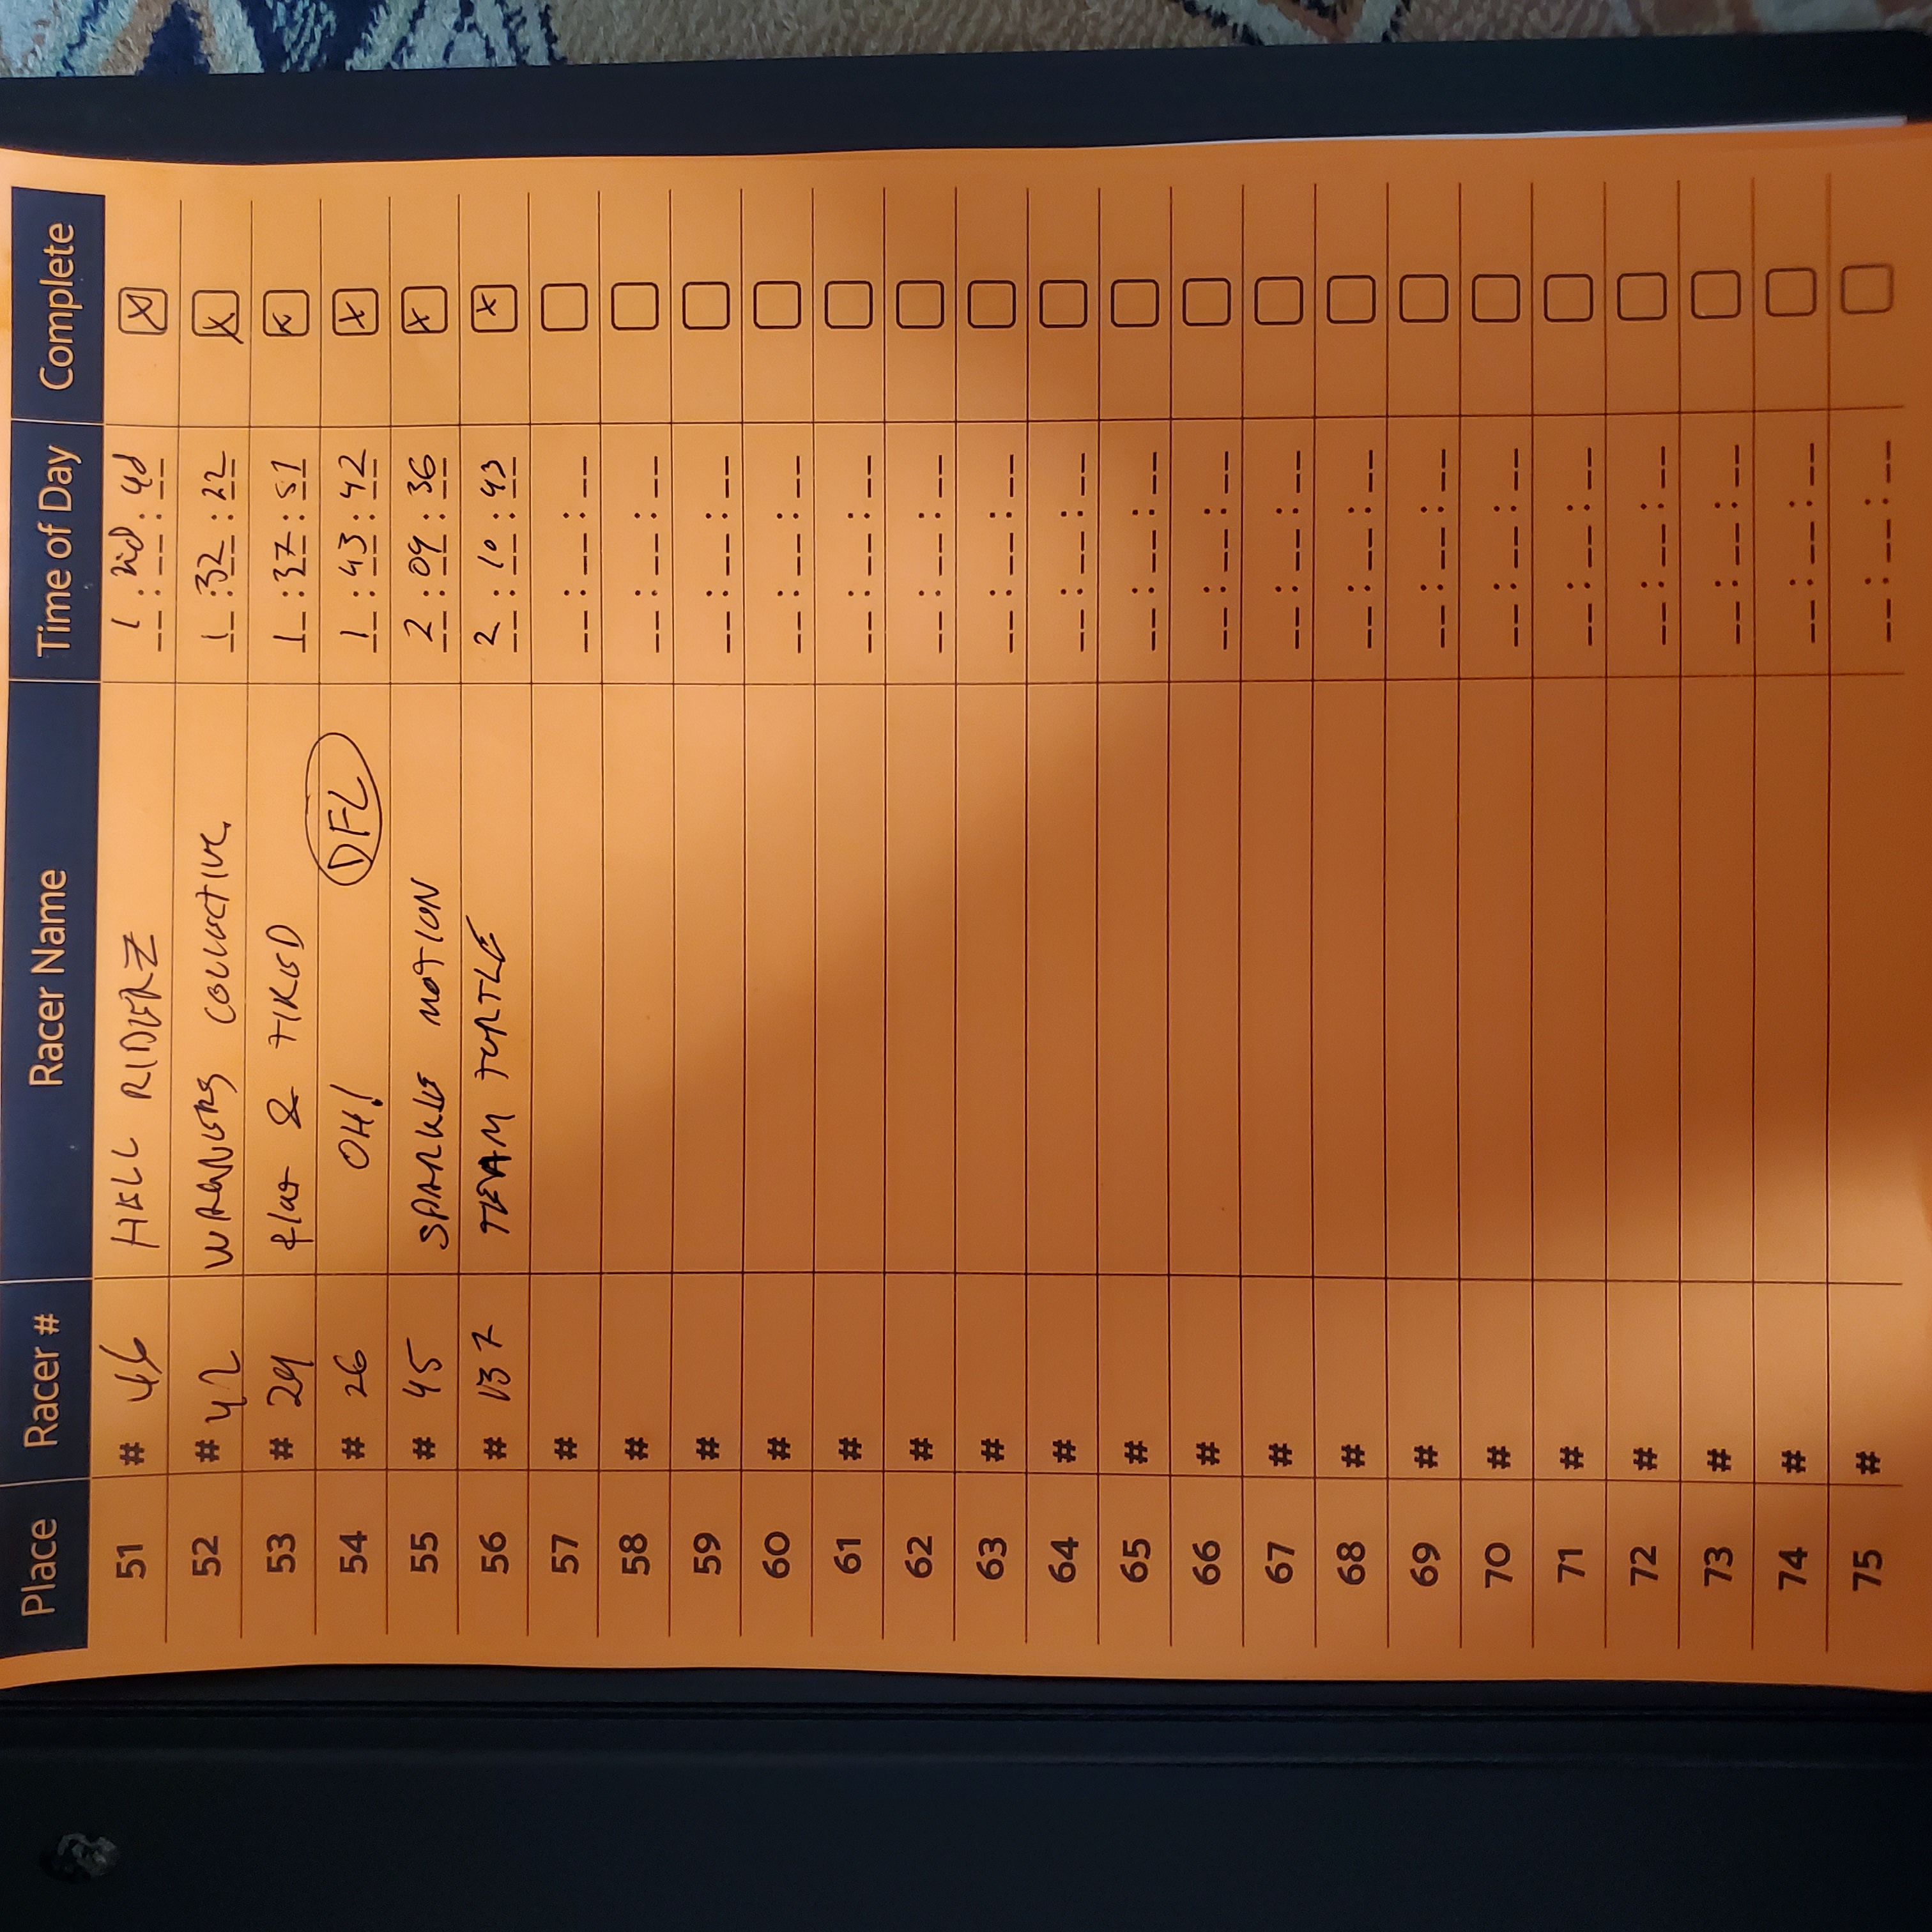 Place Racer # Racer Name Time of Day Complete
51 # 46 HELL RIDERZ 1 : 28 : 48
52 # 42 COLLECTIVE 1 : 32 : 22
53 # 29 flat & TIRED 1 : 37 : 51
54 # 26 OH! DFL 1 : 43 : 42
55 # 45 SPARKLE MOTION 2 : 09 : 36
56 # 137 TEAM TURTLE 2 : 10 : 43
57 # __ : __ : __
58 # __ : __ : __
59 # __ : __ : __
60 # __ : __ : __
61 # __ : __ : __
62 # __ : __ : __
63 # __ : __ : __
64 # __ : __ : __
65 # __ : __ : __
66 # __ : __ : __
67 # __ : __ : __
68 # __ : __ : __
69 # __ : __ : __
70 # __ : __ : __
71 # __ : __ : __
72 # __ : __ : __
73 # __ : __ : __
74 # __ : __ : __
75 # __ : __ : __